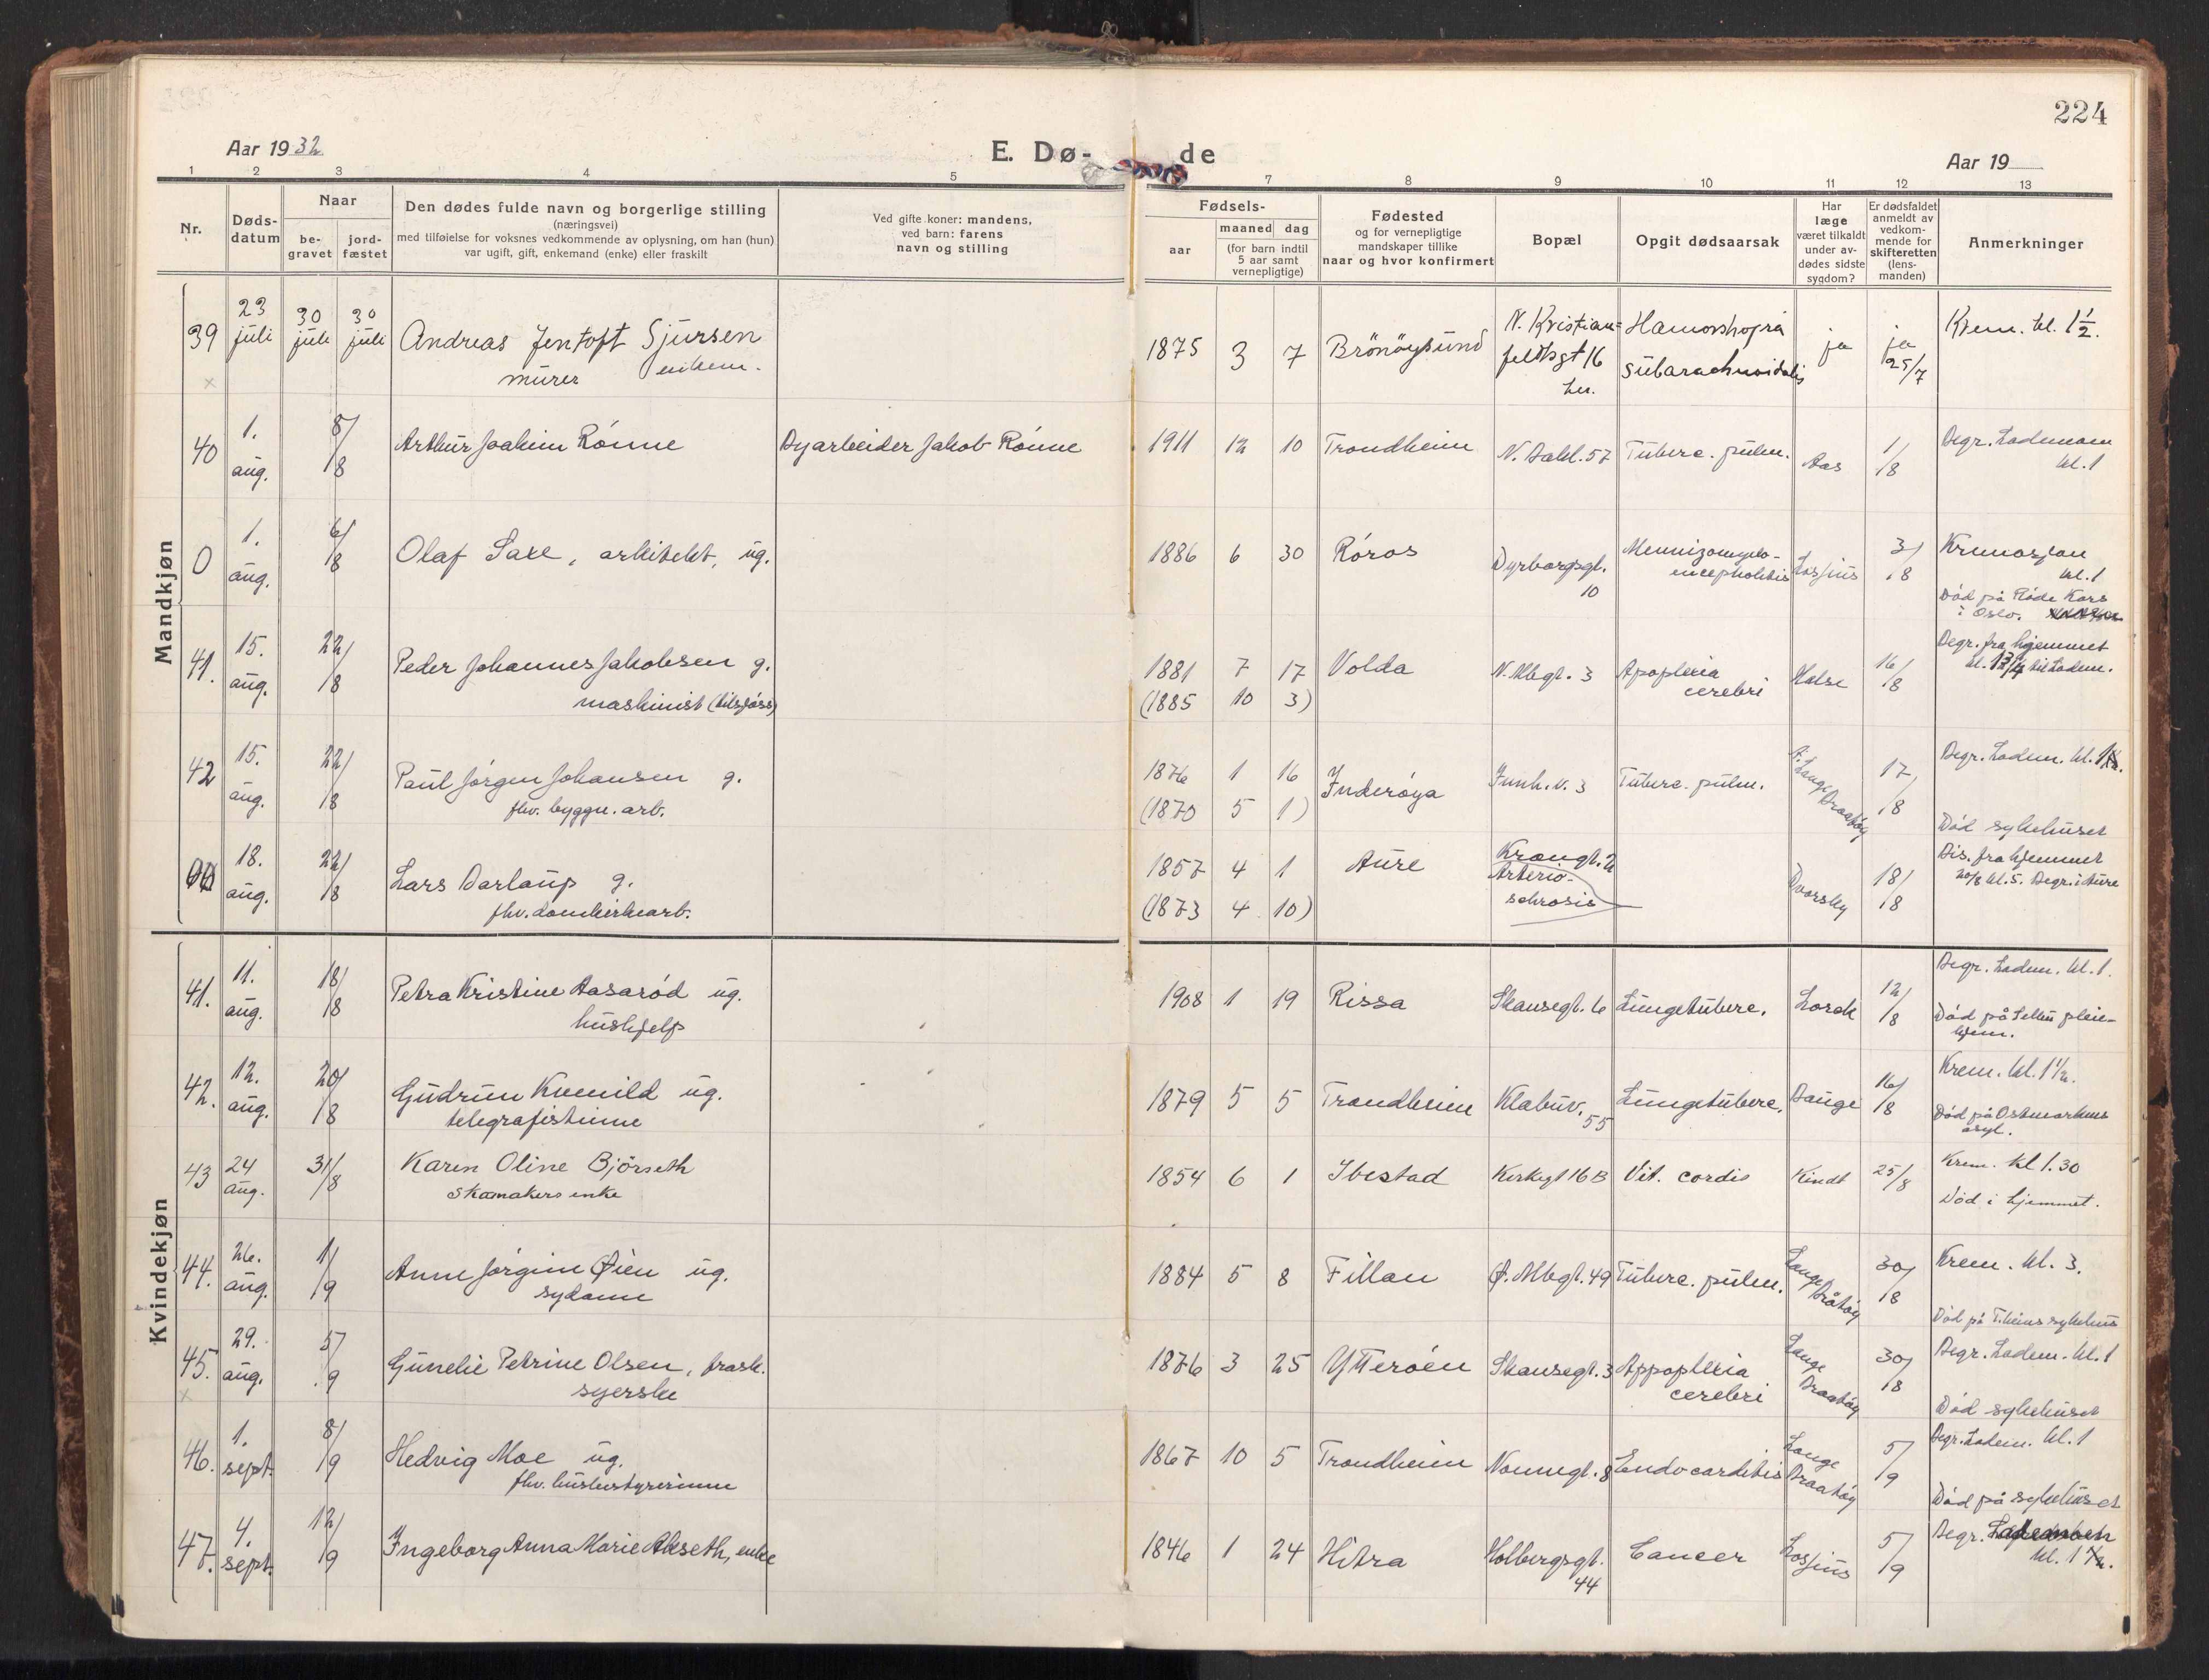 224
Aar 1932
E. Dø-
de
Aar 19
1 2 3 4 5 7 8 9 10 11 12 13
Nr.
Døds-
datum
Naar
be-
gravet
jord-
fæstet
Den dødes fulde navn og borgerlige stilling
(næringsvei)
med tilføielse for voksnes vedkommende av oplysning, om han (hun)
var ugift, gift, enkemand (enke) eller fraskilt
Ved gifte koner: mandens,
ved barn: farens
navn og stilling
Fødsels-
aar
maaned dag
(for barn indtil
5 aar samt
vernepligtige)
Fødested
og for vernepligtige
mandskaper tillike
naar og hvor konfirmert
Bopæl
Opgit dødsaarsak
Har
læge
været tilkaldt
under av-
dødes sidste
sygdom?
Er dødsfaldet
anmeldt av
vedkom-
mende for
skifteretten
(lens-
manden)
Anmerkninger
Mandkjøn
39 23 juli 30 juli 30 juli Andreas Jentoft Sjursen
murer enkem.
1875 3 7 Brönöysund N. Kristian=
feldtsgt 16
subarachnoidalis ja ja 25/7 Krem. kl. 1½.
40 1. aug. 8/8 Arthur Joakim Rónne
Jakob Rónne
1911 12 10 Trondheim 57 Tuberc. pulm. Aas 1/8 Begr. Lademoen
kl. 1
0 1. aug. 6/8 Olaf Saxe, arkitekt, ug.
1886 6 30 Róros Dyrborgsgt.
10
Losjius 3/8
kl. 1
Död på Röde Kors
i Oslo.
41. 15. aug. 22/8 Peder Johannes Jakobsen g.
maskinist (tilsjøss)
1881 7 17 Volda N. Allegt. 3 Apoplexia
cerebri Halse 16/8
(1885 10 3)
Begr. fra hjemmet
til Ladem.
42 15. aug. 22/8 Paul Jórgen Johansen g.
fhv. byggn. arb.
1876 1 16 Inderøya Innh. v. 3 Tuberc. pulm. 17/8
(1870 5 1)
Begr. Ladem. kl.
Död sykehuset
18. aug. 22/8 Lars Darlaup g.
fhv. domkirkearb.
1857 4 1 Aure Krongt. 2
Arterio-
sclerosis
Dvorsky 18/8
(1873 4 10)
Bis. fra hjemmet
20/8 kl. 5. Begr. i Aure
Kvindekjøn
41. 11. aug. 18/8 Petra Kristine Aasaród ug.
hushjelp
1908 1 19 Rissa Skansegt. 6 Lungetuberc. Lorck 12/8
Begr. Ladem. kl. 1.
pleie-
hjem.
42. 12. aug. 20/8 Gudrun Kvenild ug.
telegrafistinne
1879 5 5 Trondheim Klabuv.
55 Lungetuberc. Bauge 16/8
Krem. kl. 1½.
Död på Östmarkens
asyl.
43 24 aug. 31/8 Karen Oline Björseth
Skomakers enke
1854 6 1 Ibestad Kirkegt 16 B Vit. cordis Kindt 25/8
Krem. kl 1.30
Död i hjemmet.
44. 26. aug. 1/9 Anne Jórgine Øien ug.
sydame
1884 5 8 Fillan Ø. Allegt. 49 Tuberc. pulm. Lange 30/8
Krem. kl. 3.
Död på T.heims sykehus
45. 29. aug. 5/9 Gunelie Petrine Olsen, frask.
syerske
1876 3 25 Ytterøen Skansegt. 3 Appoplexia
cerebri Lange 30/8
Begr. Ladem. kl. 1
Död sykehuset
46. 1. sept. 8/9 Hedvig Moe ug.
fhv. husbestyrerinne
1867 10 5 Trondheim Nonnegt. 8 Endocarditis Lange 5/9
Begr. Ladem. kl. 1
Död på sykehuset
47. 4. sept. 12/9 Ingeborg Anna Marie Akseth, enke
1846 1 24 Hitra Holbergsgt.
44 Cancer Losjius 5/9
Begr. Lademoen
kl. 1½.